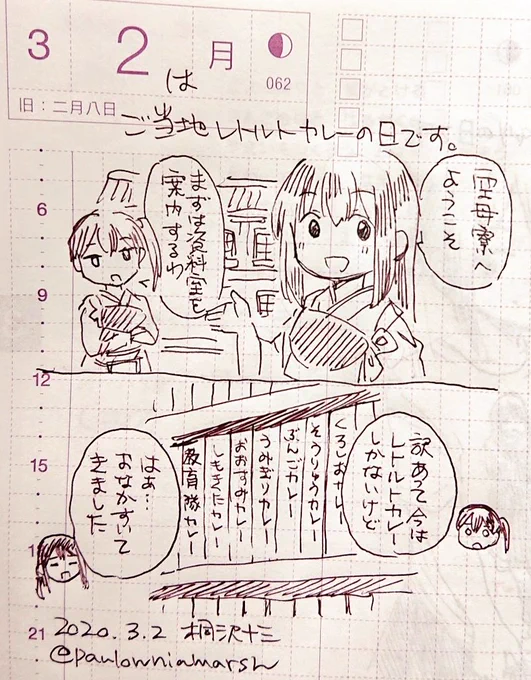 3
2
月
062
旧：二月八日
は
ご当地レトルトカレーの日です。
空母寮へ
ようこそ
まずは資料室を
案内するわ
6
9
12
訳あって今は
レトルトカレー
しかないけど
くろしおカレー
そうりゅうカレー
ぶんごカレー
うみぎりカレー
おおすみカレー
しもきたカレー
教育隊カレー
はぁ…
おなかすいて
きました
15
21
2020.3.2 桐沢十三
@paulowniamarsh